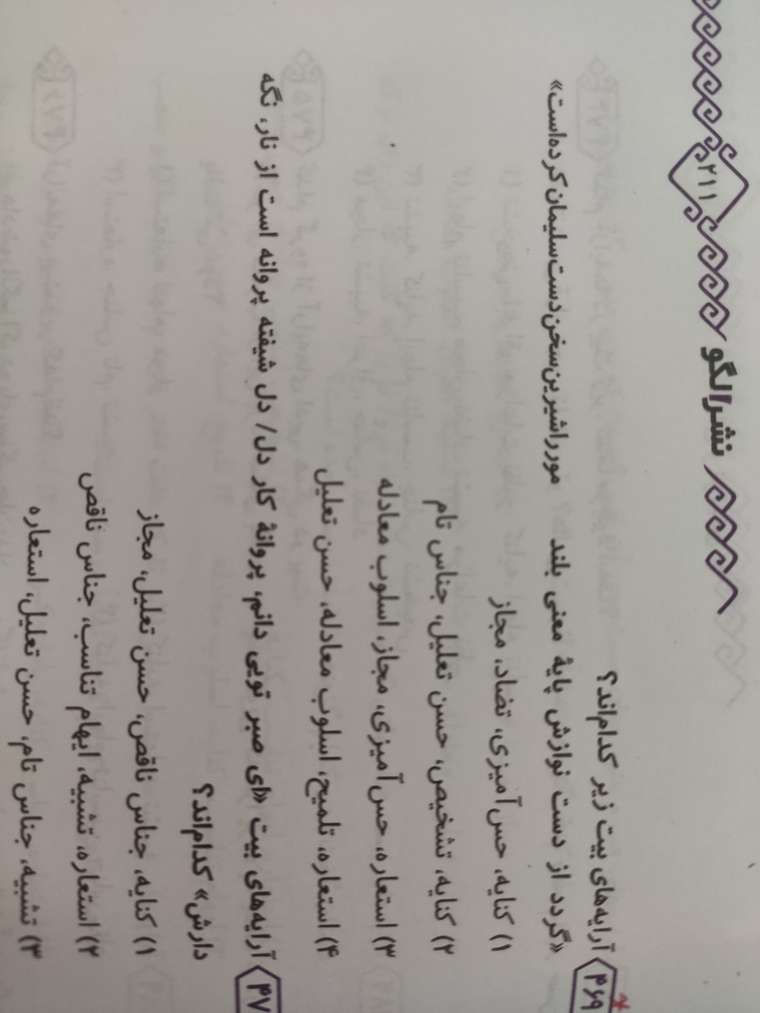 ۲۱۱
نشر الگو
۴۶۹ آرایه‌های بیت زیر کدام‌اند؟
«گردد از دست نوازش پایهٔ معنی بلند مور را شیرین سخن دست سلیمان کرده است»
۱) کنایه، حس‌آمیزی، تضاد، مجاز
۲) کنایه، تشخیص، حسن تعلیل، جناس تام
۳) استعاره، حس‌آمیزی، مجاز، اسلوب معادله
۴) استعاره، تلمیح، اسلوب معادله، حسن تعلیل
۴۷ آرایه‌های بیت «ای صبر تویی دانم، پروانهٔ کار دل/ دل شیفته پروانه است از نار، نگه
دارش» کدام‌اند؟
۱) کنایه، جناس ناقص، حسن تعلیل، مجاز
۲) استعاره، تشبیه، ایهام تناسب، جناس ناقص
۳) تشبیه، جناس تام، حسن تعلیل، استعاره